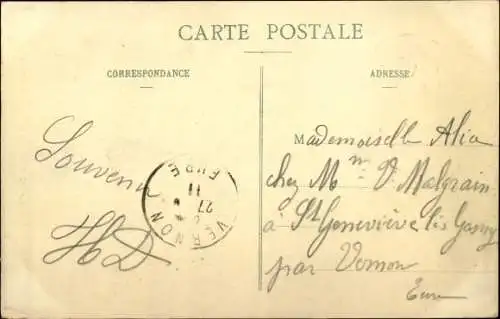 CARTE POSTALE
CORRESPONDANCE
ADRESSE
Souvenir
HD
VERNON
EURE
27
11
Mademoiselle Alia
chez Mme V. Malgrain
à Ste Geneviève lès Gasny
par Vernon
Eure